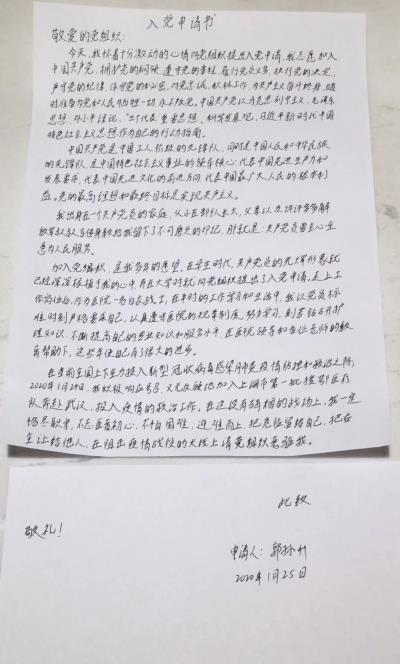 入党申请书
敬爱的党组织：
今天，我怀着十分激动的心情向党组织提出入党申请，我志愿加入
中国共产党，拥护党的纲领，遵守党的章程，履行党员义务，执行党的决定，
严守党的纪律，保守党的秘密，对党忠诚，积极工作，为共产主义奋斗终身，随
时准备为党和人民牺牲一切，永不叛党。中国共产党以马克思列宁主义、毛泽东
思想、邓小平理论、“三个代表”重要思想、科学发展观、习近平新时代中国
特色社会主义思想作为自己的行动指南。
中国共产党是中国工人阶级的先锋队，同时是中国人民和中华民族
的先锋队，是中国特色社会主义事业的领导核心，代表中国先进生产力的
发展要求，代表中国先进文化的前进方向，代表中国最广大人民的根本利
益。党的最高理想和最终目标是实现共产主义。
我出身在一个共产党员的家庭，从小在部队长大，父亲以及
放军叔叔言传身教给我留下了不可磨灭的印记，那就是：共产党员要全心全
意为人民服务。
加入党组织，是我多年的愿望，在学生时代，共产党员的光辉形象就
已经深深根植于我的心中，并在大学时就向党组织提出了入党申请，走上工
作岗位后，作为医院一名白衣战士，在平时的工作学习和生活中，我以党员标
准时刻严格要求自己，认真遵守医院的规章制度，努力学习，刻苦钻研护
理知识，不断提高自己的专业知识和服务水平，在医院领导和各位老师的教
育帮助下，这些年使自己有了很大的进步。
在当前全国上下全力投入新型冠状病毒感染肺炎疫情防控和救治之际，
2020年1月24日，我积极响应号召，义无反顾地加入上海市第一批援鄂医疗
队奔赴武汉，投入疫情的救治工作，在这没有硝烟的战场上，我一定
恪尽职守，不忘医者初心，不怕困难，迎难而上，把危险留给自己，把安
全让给他人，在阻击疫情战役的火线上请党组织考验我。
此致
敬礼！
申请人：
2020年1月25日